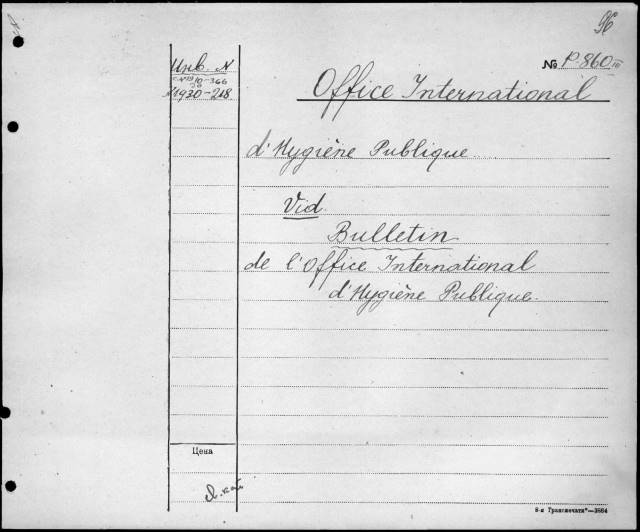 96
Инв. N
№ P. 860 III
1930-218
Office International
d'Hygiène Publique
Vid.
Bulletin
de l'Office International
d'Hygiène Publique.
Цена
8-я Транспечати"—3564